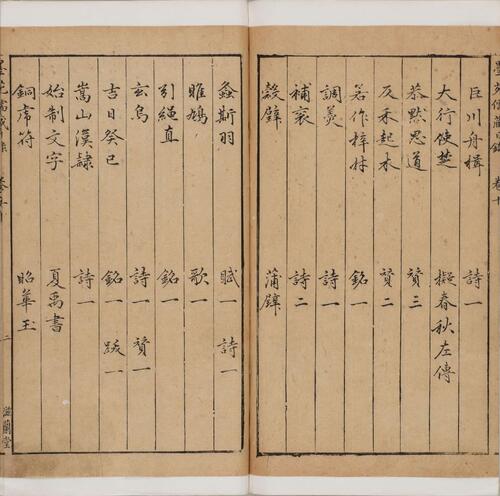 巨川舟楫 詩一
大行使楚 擬春秋左傳
恭默思道 贊三
反禾起木 贊二
若作梓材 銘一
調羹 詩一
補袞 詩二
穀璧 蒲璧
螽斯羽 賦一 詩一
雎鳩 歌一
引繩直 銘一
玄鳥 詩一 贊一
吉日癸巳 銘一 跋一
嵩山漢隸 詩一
始制文字 夏禹書
銅虎符 昭華玉
二
滋蘭堂